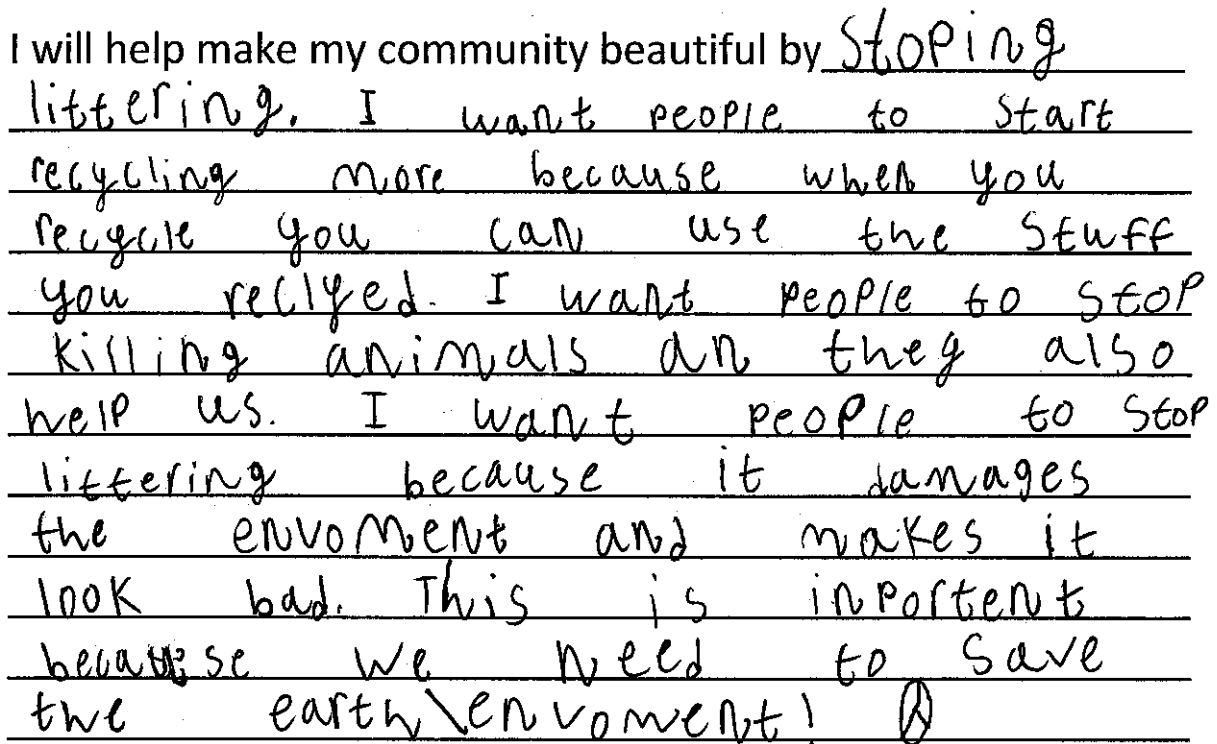 I will help make my community beautiful by Stoping
littering. I want people to start
recycling more because when you
recycle you can use the stuff
you reclyed. I want people to stop
killing animals an they also
help us. I want people to stop
littering because it damages
the envoment and makes it
look bad. This is inportent
because we need to save
the earth\envoment!